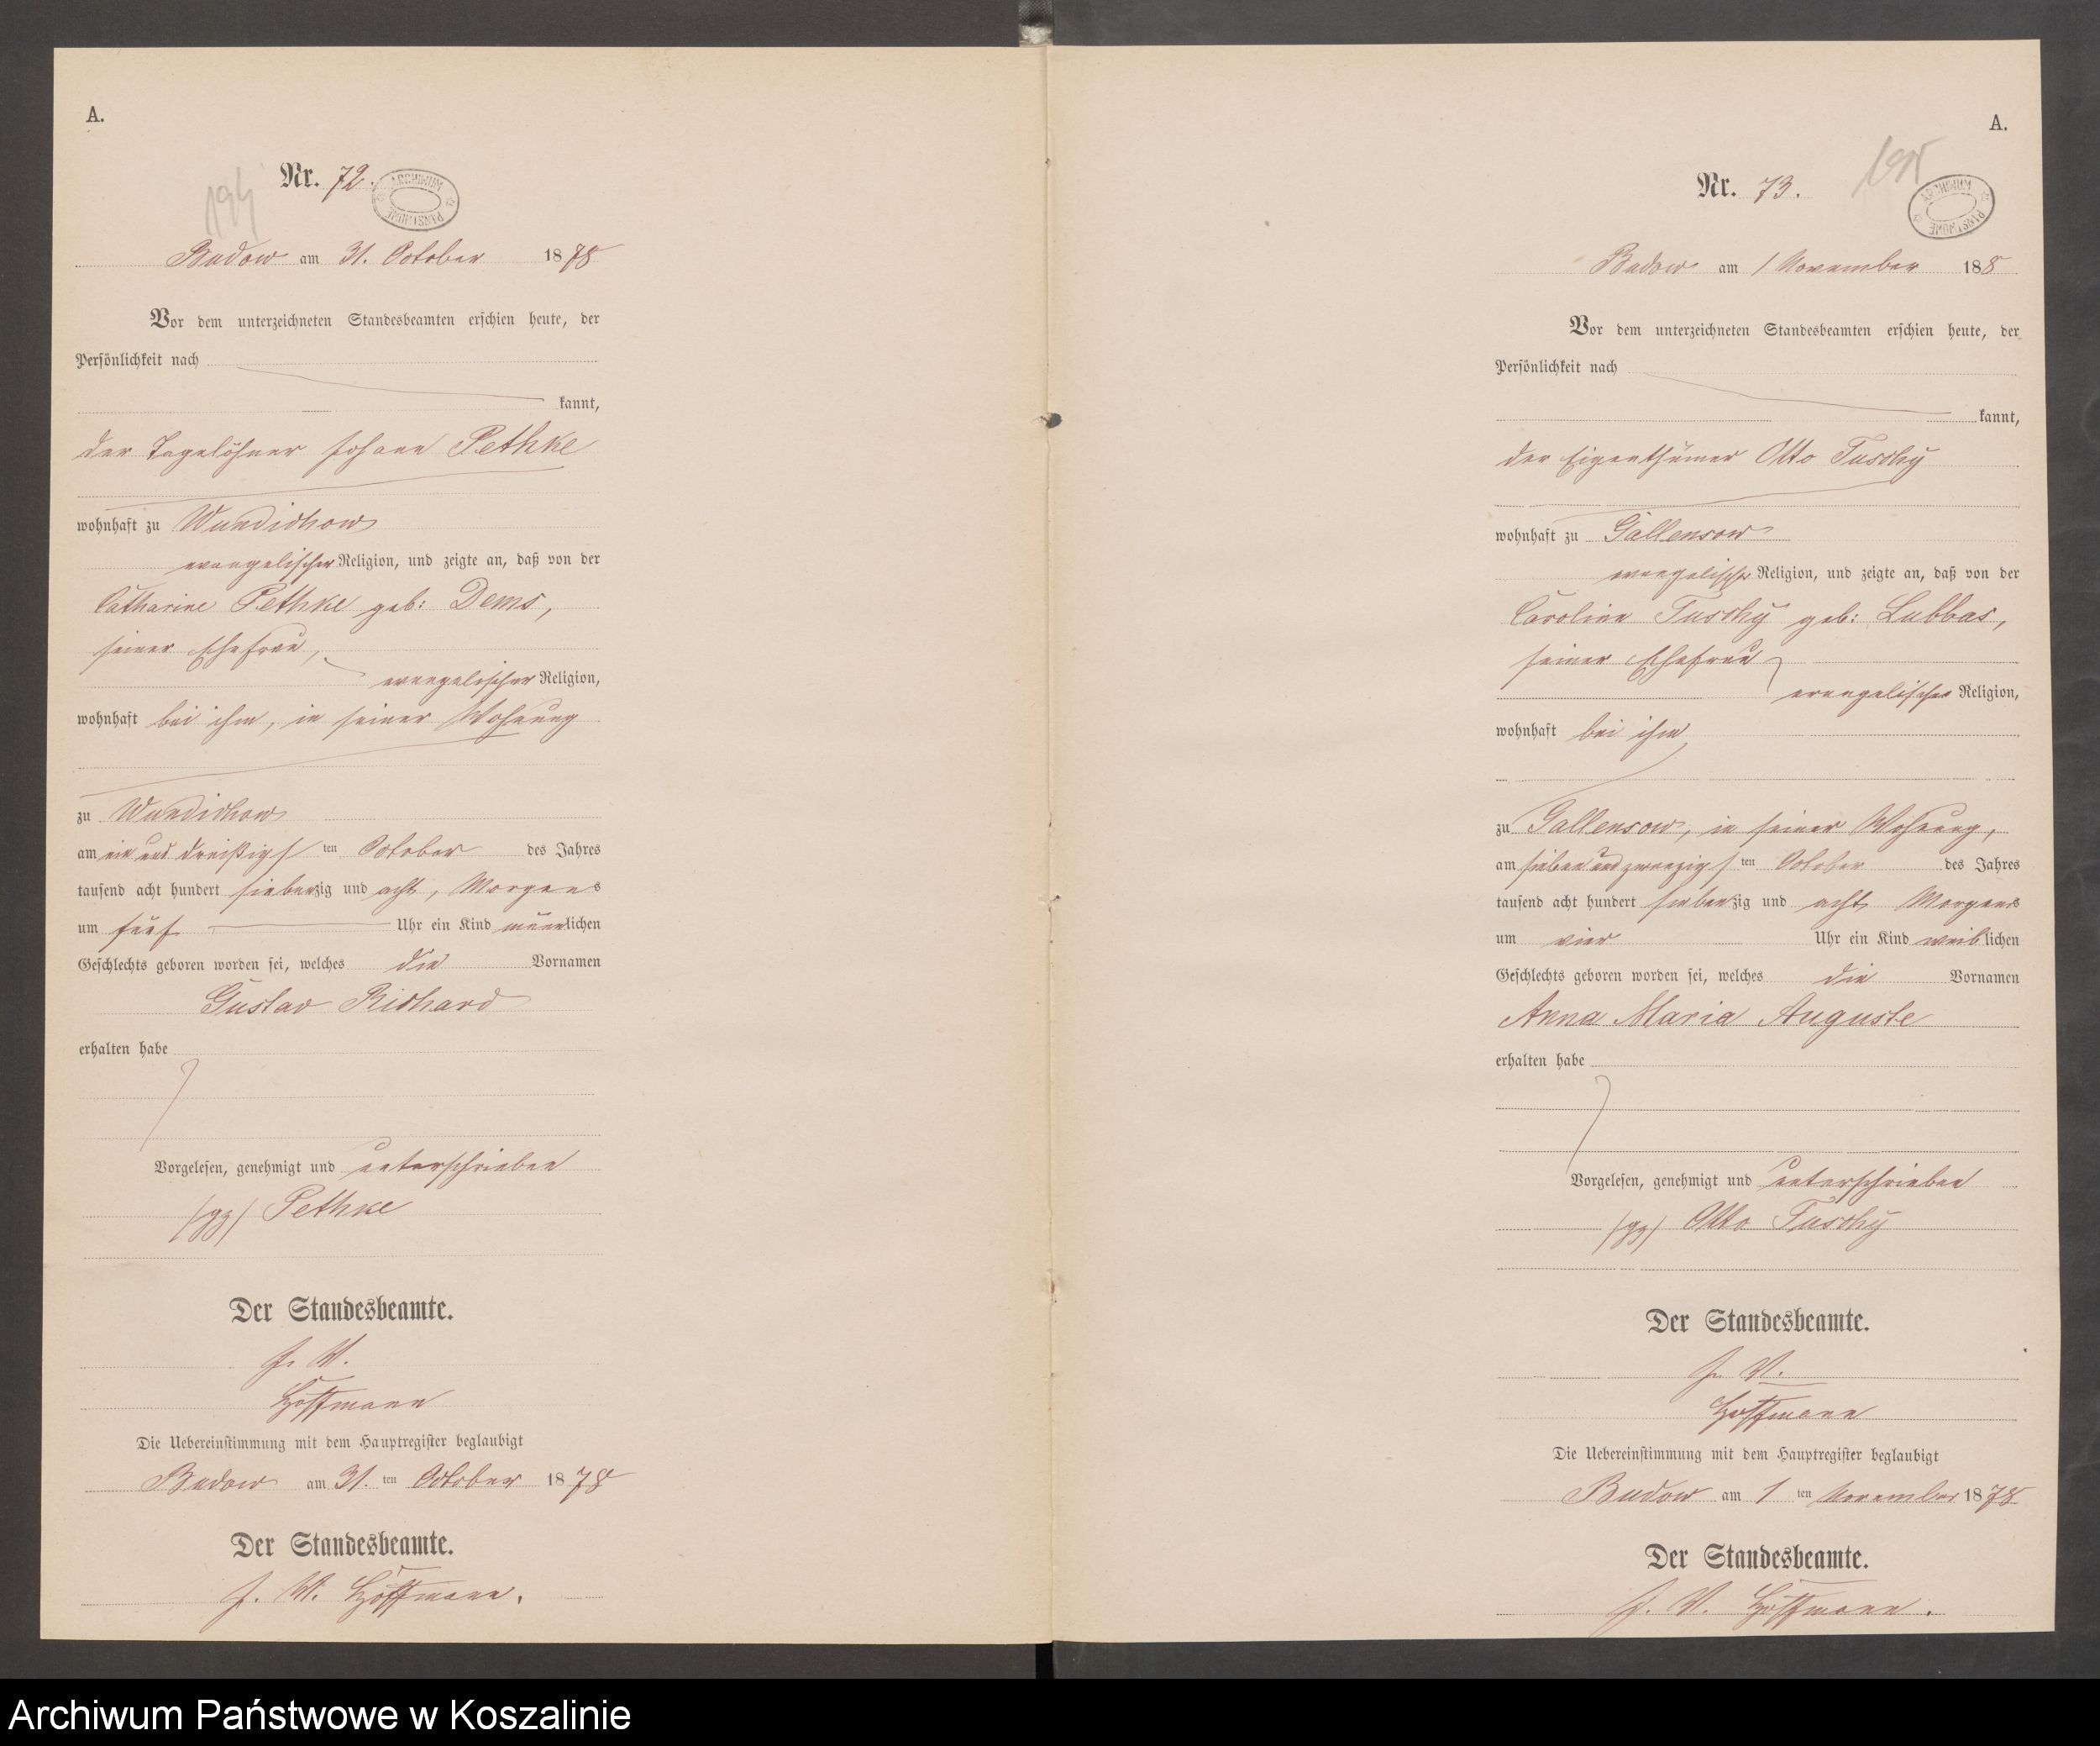 A.
194
Nr. 72.
ARCHIWUM PAŃSTWOWE
Budow am 31. October 1878
Vor dem unterzeichneten Standesbeamten erschien heute, der
Persönlichkeit nach
kannt,
der Tagelöhner Johann Pethke
wohnhaft zu Wundichow
evangelischer Religion, und zeigte an, daß von der
Catharine Pethke geb: Dems,
seiner Ehefrau,
evangelischer Religion,
wohnhaft bei ihm, in seiner Wohnung
zu Wundichow
am ein und dreißigs ten October des Jahres
tausend acht hundert siebenzig und acht, Morgens
um fünf Uhr ein Kind männlichen
Geschlechts geboren worden sei, welches die Vornamen
Gustav Richard
erhalten habe
Vorgelesen, genehmigt und unterschrieben
(gz) Pethke
Der Standesbeamte.
J. V.
Hoffmann
Die Uebereinstimmung mit dem Hauptregister beglaubigt
Budow am 31. ten October 1878
Der Standesbeamte.
J. V. Hoffmann.
A.
195
Nr. 73.
ARCHIWUM PAŃSTWOWE
Budow am 1 November 188
Vor dem unterzeichneten Standesbeamten erschien heute, der
Persönlichkeit nach
kannt,
der Eigenthümer Otto Tuschy
wohnhaft zu Gallensow
evangelischer Religion, und zeigte an, daß von der
Caroline Tuschy geb: Lubbas,
seiner Ehefrau
evangelischer Religion,
wohnhaft bei ihm
zu Gallensow, in seiner Wohnung,
am sieben und zwanzigs ten October des Jahres
tausend acht hundert siebenzig und acht Morgens
um vier Uhr ein Kind weiblichen
Geschlechts geboren worden sei, welches die Vornamen
Anna Maria Auguste
erhalten habe
Vorgelesen, genehmigt und unterschrieben
(gz) Otto Tuschy
Der Standesbeamte.
J. V.
Hoffmann
Die Uebereinstimmung mit dem Hauptregister beglaubigt
Budow am 1 ten November 1878
Der Standesbeamte.
J. V. Hoffmann.
Archiwum Państwowe w Koszalinie